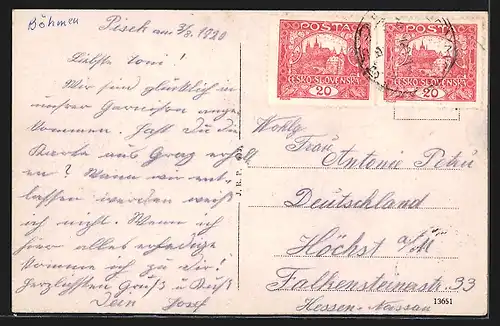 Böhmen
Pisek am 3/8. 1920
Liebste Toni!
Wir sind glücklich in
unsrer Garnison ange-
kommen. Hast du die
Karte aus Graz erhal-
ten? Wann wir ent-
lassen werden weiß
ich nicht. Wenn ich
hier alles erledige
komme ich zu dir!
Herzlichsten Gruß u. Kuß
Dein Josef
J. R. P.
POSTA
ČESKO-SLOVENSKÁ
20
POSTA
ČESKO-SLOVENSKÁ
20
Wohlg.
Frau
Antonie Petru
Deutschland
Höchst a/M
Falkensteinerstr. 33
Hessen-Nassau
13651